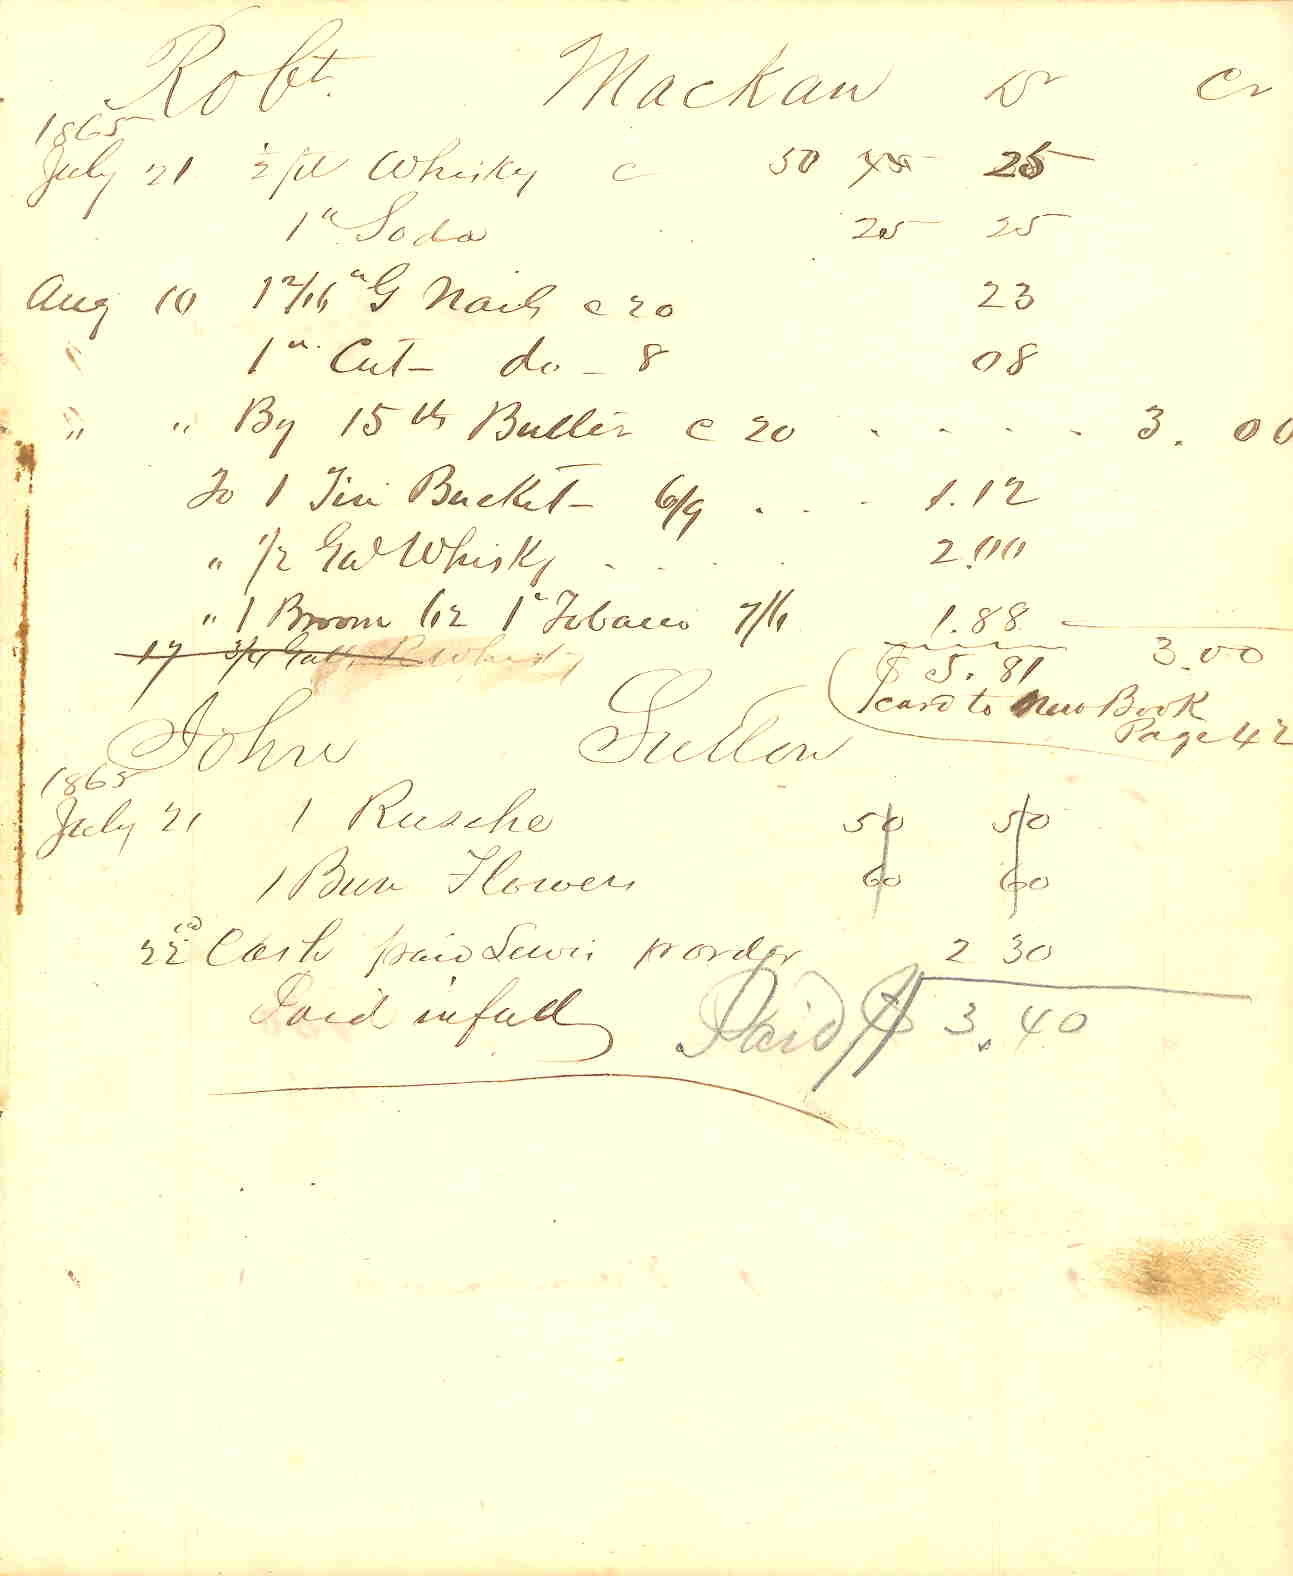 Robt. Mackan Dr Cr
1865
July 21 ½ pt Whisky c 50 25
1 " Soda 25 25
Aug 10 1 2/16 " G Nails c 20 23
1 " Cut - do - 8 08
" " By 15 lb Butter c 20 . . . . 3.00
To 1 Tin Bucket - 6/9 . . . 1.12
" 1/2 Gal Whisky . . . . 2.00
" 1 Broom 1 " Tobacco 7/6 1.88
17 3/4 Gall R Whisky $5.81 3.00
card to New Book
Page 42
John Sutton
1865
July 21 1 Rusche 50 50
1 Bun Flowers 60 60
22nd Cash paid Lewis pr order 2 30
Paid in full Paid $3.40